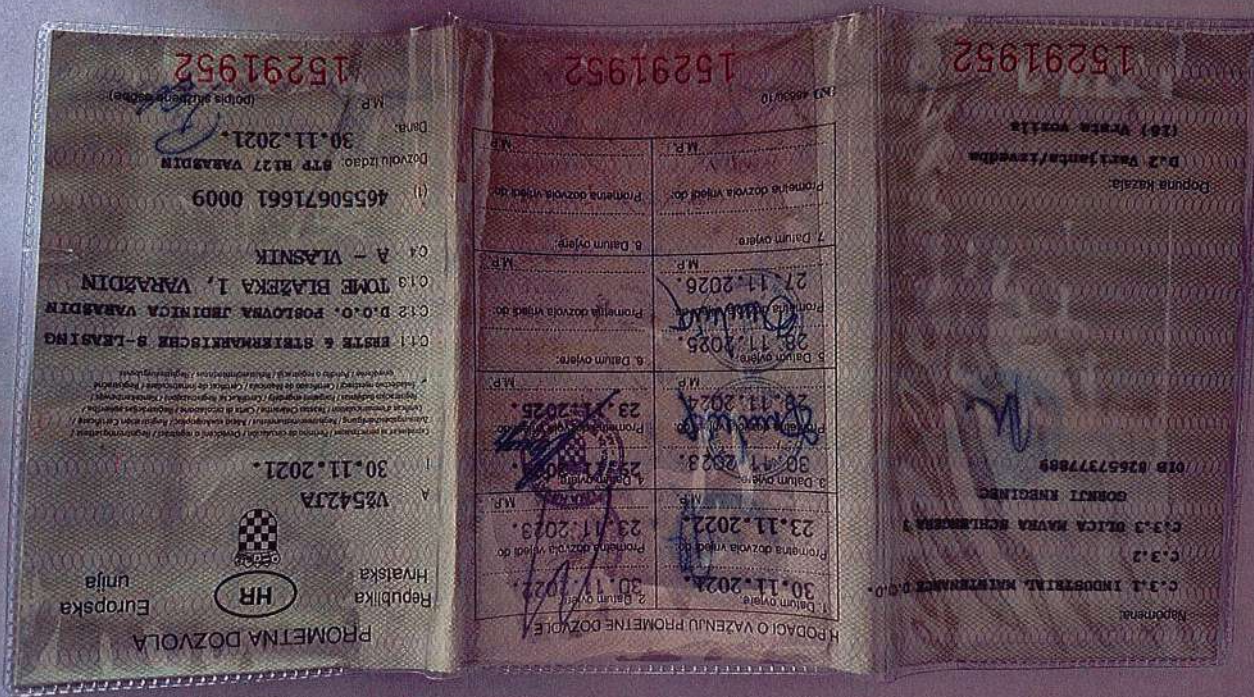 PROMETNA DOZVOLA
Republika
Hrvatska
HR
Europska
unija
A VŽ542JA
I 30.11.2021.
C.1.1 ERSTE & STEIERMARKISCHE S-LEASING
C.1.2 D.O.O. POSLOVNA JEDINICA VARAŽDIN
C.1.3 TOME BLAŽEKA 1, VARAŽDIN
C.4 A - VLASNIK
(1) 46550671661 0009
Dozvolu izdao: STP H127 VARAŽDIN
Dana: 30.11.2021.
M.P. (potpis službene osobe)
15291952
H PODACI O VAŽENJU PROMETNE DOZVOLE
1. Datum ovjere
30.11.2021.
Prometna dozvola vrijedi do:
23.11.2022.
M.P.
2. Datum ovjere
30.11.2022.
Prometna dozvola vrijedi do
23.11.2023.
M.P.
3. Datum ovjere:
30.11.2023.
Prometna dozvola vrijedi do:
M.P.
4. Datum ovjere:
Prometna dozvola vrijedi do:
23.11.2025.
M.P.
5. Datum ovjere:
28.11.2025.
Prometna dozvola vrijedi do:
27.11.2026.
M.P.
6. Datum ovjere:
Prometna dozvola vrijedi do:
M.P.
7. Datum ovjere:
Prometna dozvola vrijedi do:
M.P.
8. Datum ovjere:
Prometna dozvola vrijedi do:
M.P.
15291952
Napomena:
C.3.1 INDUSTRIAL MAINTENANCE D.O.O.
C.3.2
C.3.3 ULICA MAVRA SCHLENGERA
GORNJI KNEGINEC
OIB 82657377889
Dopuna kazala:
D.2 Varijanta/izvedba
(16) Vrsta vozila
15291952